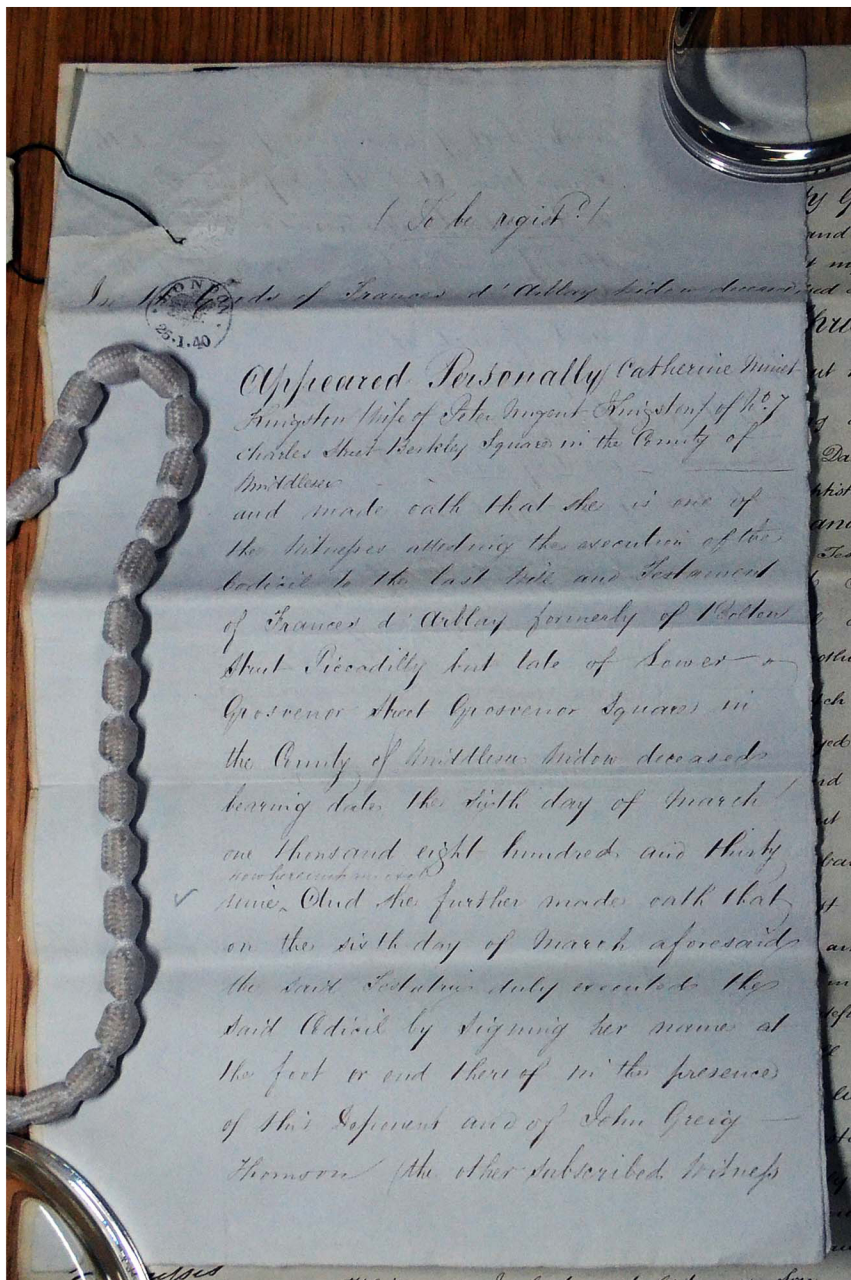 ( To be regist.d )
In the Goods of Frances d'Arblay Widow deceased
LONDON
25.1.40
Appeared Personally Catherine Minet
Kingston (Wife of Peter Nugent Kingston) of No. 7
Charles Street Berkley Square in the County of
Middlesex
and made oath that she is one of
the Witnesses attesting the execution of the
Codicil to the last Will and Testament
of Frances d'Arblay formerly of Bolton
Street Piccadilly but late of Lower
Grosvenor Street Grosvenor Square in
the County of Middlesex Widow deceased
bearing date the sixth day of March
one thousand eight hundred and thirty
now hereunto annexed
nine. And she further made oath that
on the sixth day of March aforesaid
the said Testatrix duly executed the
said Codicil by signing her name at
the foot or end thereof in the presence
of this Deponent and of John Greig
Thomson (the other subscribed Witness